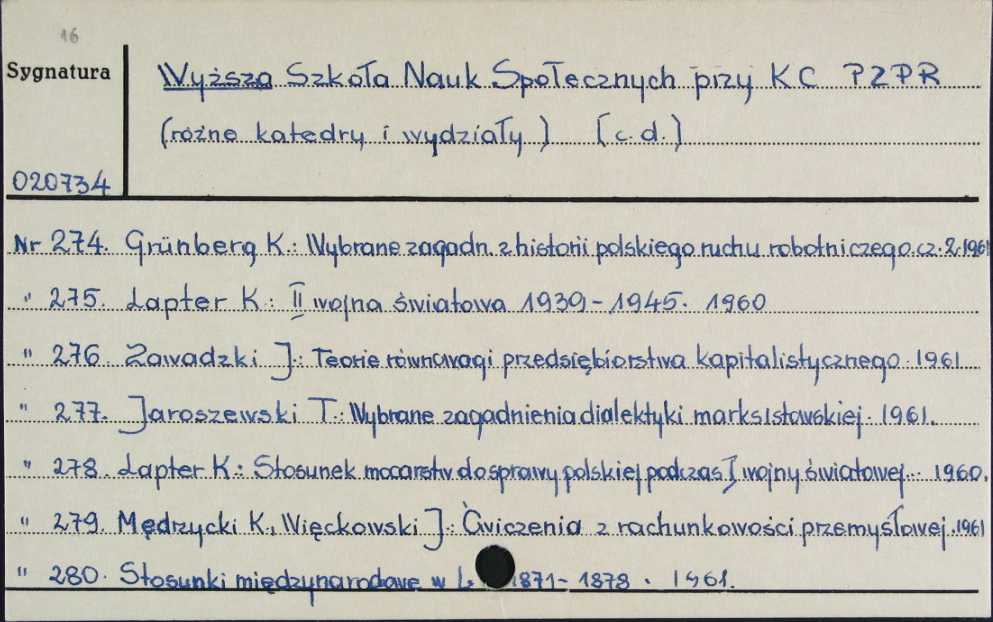 16
Sygnatura
Wyższa Szkoła Nauk Społecznych przy KC PZPR
(różne katedry i wydziały) [c.d.]
020734
Nr 274. Grünberg K.: Wybrane zagadn. z historii polskiego ruchu robotniczego. cz. 2. 1961
" 275. Lapter K: II wojna światowa 1939-1945. 1960
" 276. Zawadzki J.: Teorie równowagi przedsiębiorstwa kapitalistycznego. 1961
" 277. Jaroszewski T.: Wybrane zagadnienia dialektyki marksistowskiej. 1961.
" 278. Lapter K.: Stosunek mocarstw do sprawy polskiej podczas I wojny światowej. 1960.
" 279. Mędrzycki K., Więckowski J.: Ćwiczenia z rachunkowości przemysłowej. 1961
" 280. Stosunki międzynarodowe w 1871-1878. 1961.